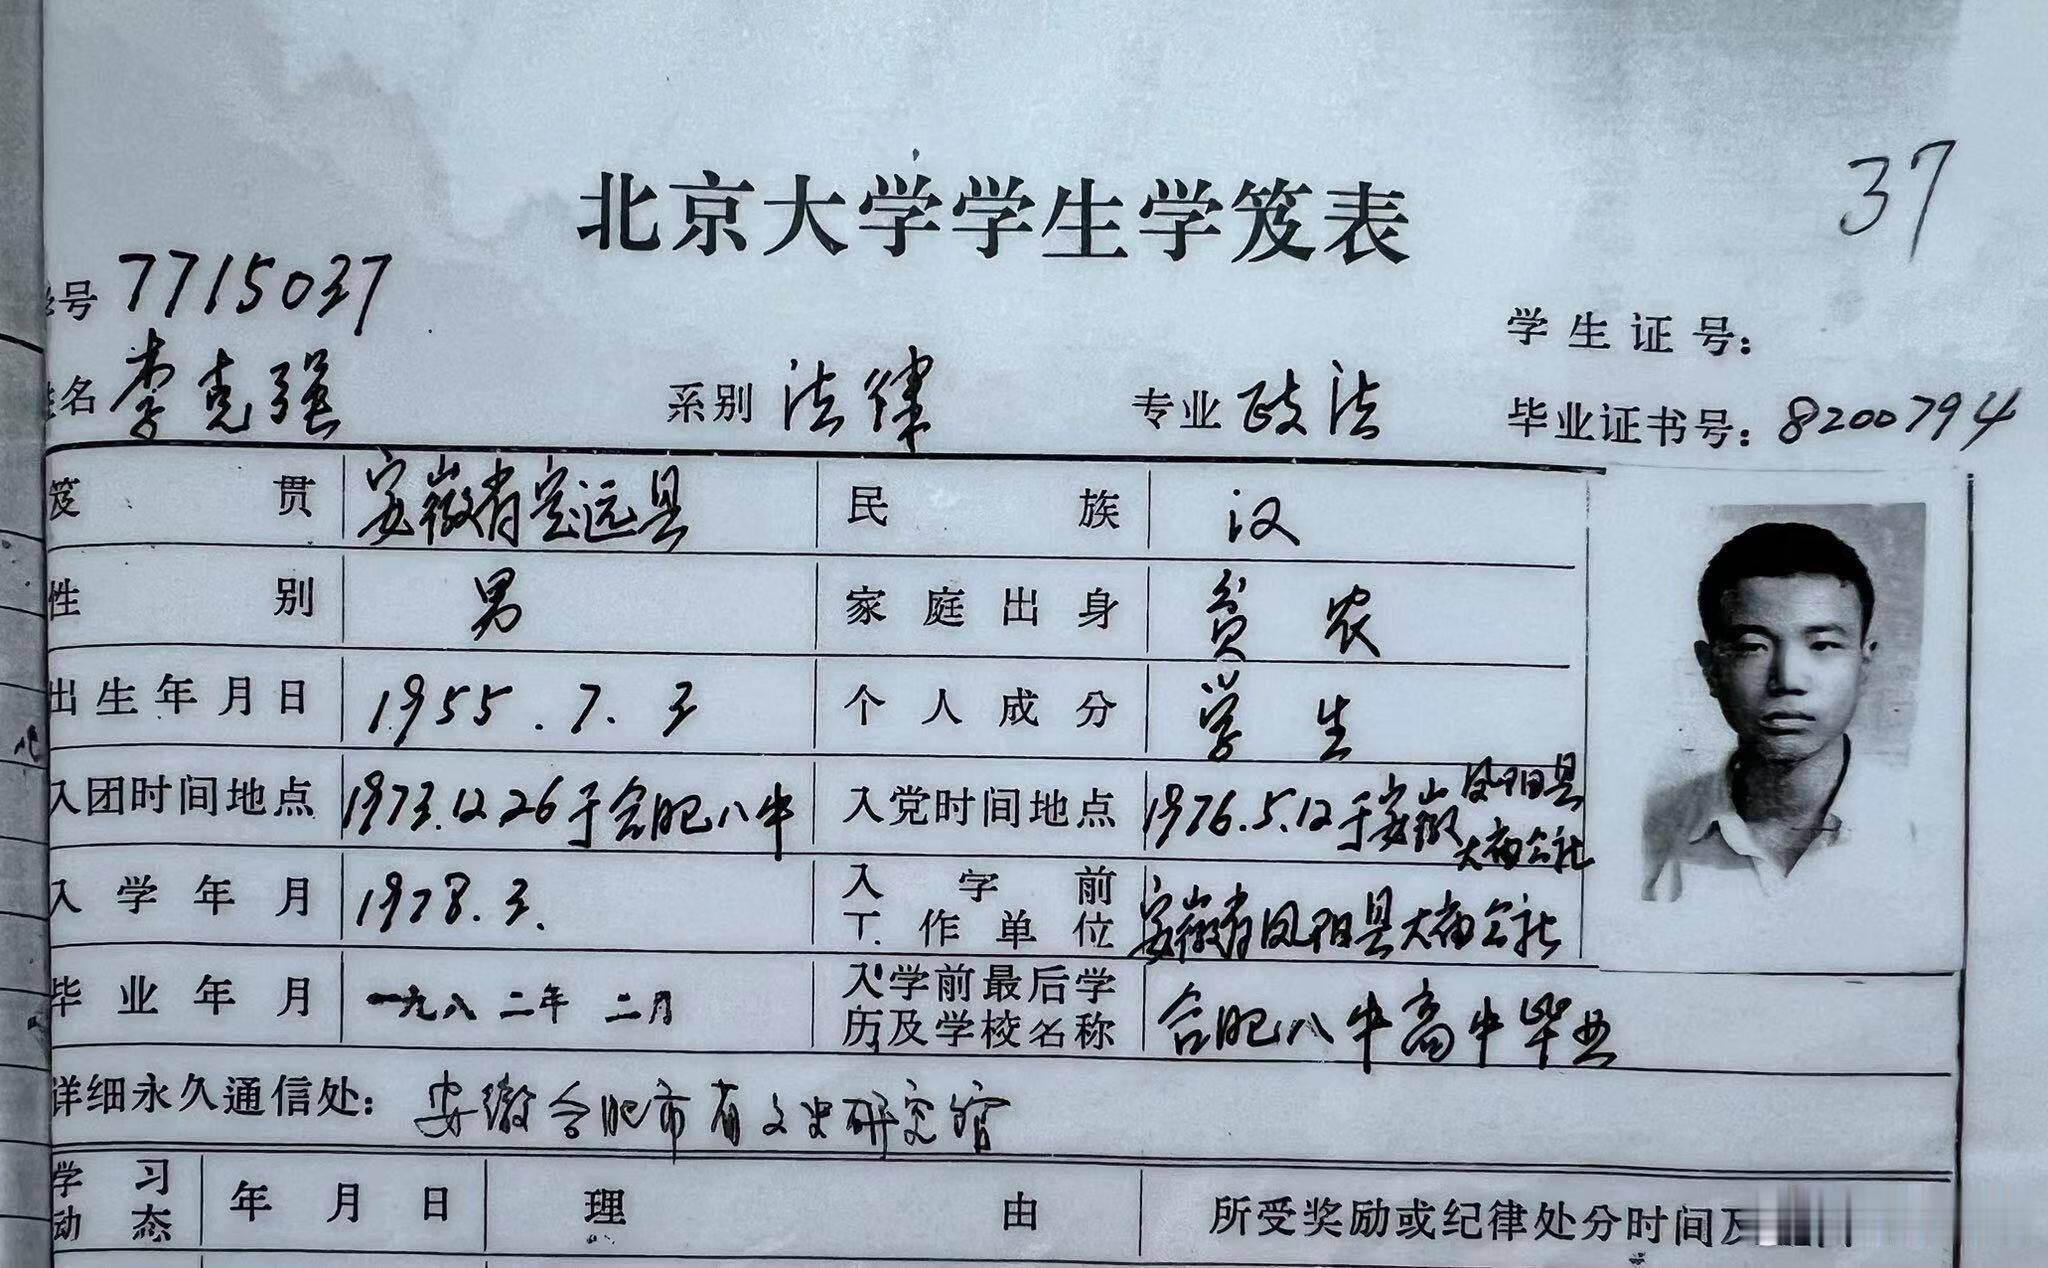 北京大学学生学笈表
37
学号 7715037
学生证号：
姓名 李克强 系别 法律 专业 政法 毕业证书号：8200794
笈贯 安徽省定远县 民族 汉
性别 男 家庭出身 贫农
出生年月日 1955.7.3 个人成分 学生
入团时间地点 1973.12.26于合肥八中 入党时间地点 1976.5.12于安徽凤阳县大庙公社
入学年月 1978.3. 入学前工作单位 安徽省凤阳县大庙公社
毕业年月 一九八二年 二月 入学前最后学历及学校名称 合肥八中高中毕业
详细永久通信处：安徽合肥市省文史研究馆
学习动态 年月日 理由 所受奖励或纪律处分时间及